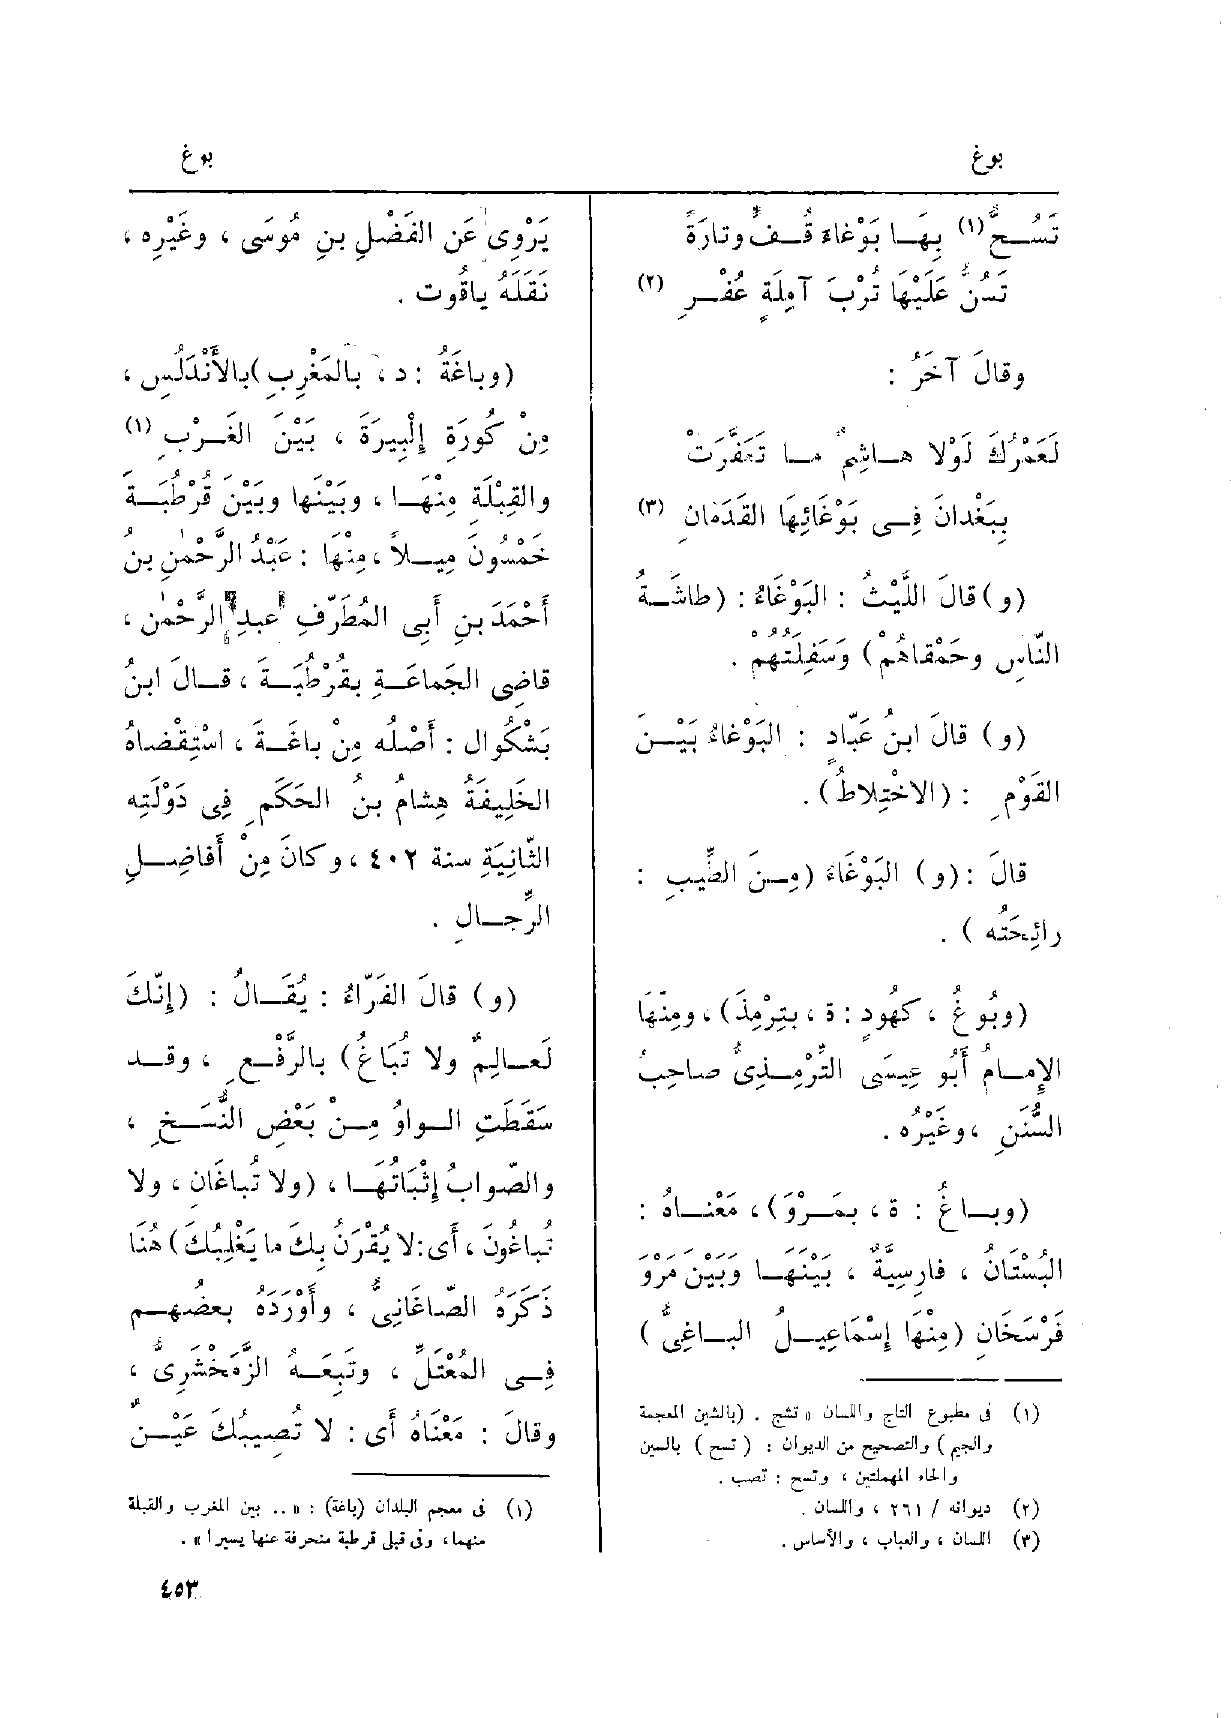 بوغ
بوغ
تَسُحُّ (١) بِهَا بَوْغَاءَ قُفٍّ وتارَةً
تَسُنُّ عَلَيْهَا تُرْبَ آمِلَةٍ عُفْرِ (٢)
وقالَ آخَرُ :
لَعَمْرُكَ لَوْلا هاشِمٌ ما تَعَفَّرَتْ
بِبَغْدانَ فِى بَوْغَائِهَا القَدَمَانِ (٣)
(و) قالَ اللَّيْثُ : البَوْغَاءُ : (طاشَةُ
النَّاسِ وحَمْقاهُم) وَسَفِلَتُهُمْ .
(و) قالَ ابنُ عَبَّادٍ : البَوْغَاءُ بَيْنَ
القَوْمِ : (الاخْتِلاطُ) .
قالَ : (و) البَوْغَاءُ (مِنَ الطِّيبِ :
رائِحَتُه ) .
(وبُوغُ ، كهُودٍ : ة ، بتِرْمِذَ) ، ومِنْهَا
الإِمامُ أَبُو عِيسَى التِّرْمِذِىُّ صاحِبُ
السُّنَنِ ، وغَيْرُه .
(وباغُ : ة ، بمَرْوَ) ، مَعْناهُ :
البُسْتَانُ ، فارِسِيَّةٌ ، بَيْنَهَا وَبَيْنَ مَرْوَ
فَرْسَخَانِ (مِنْهَا إِسْمَاعِيلُ الباغِىُّ )
(١) فى مطبوع التاج واللسان «تشج . (بالشين المعجمة
والجيم) والتصحيح من الديوان : (تسح) بالسين
والحاء المهملتين ، وتسح : تصب .
(٢) ديوانه / ٢٦١ ، واللسان .
(٣) اللسان ، والعباب ، والأساس .
يَرْوِى عَن الفَضْلِ بنِ مُوسَى ، وغَيْرِه ،
نَقَلَهُ ياقُوت .
(وباغَةُ : د ، بالمَغْرِبِ) بالأَنْدَلُسِ ،
مِنْ كُورَةِ إِلْبِيرَةَ ، بَيْنَ الغَرْبِ (١)
والقِبْلَةِ مِنْهَا ، وبَيْنَها وبَيْنَ قُرْطُبَةَ
خَمْسُونَ مِيلاً ، مِنْهَا : عَبْدُ الرَّحْمٰنِ بنُ
أَحْمَدَ بنِ أَبِى المُطَرِّفِ عبدِ الرَّحْمٰنِ ،
قاضِى الجَماعَةِ بقُرْطُبَةَ ، قالَ ابنُ
بَشْكُوال : أَصْلُه مِنْ باغَةَ ، اسْتِقْضاهُ
الخَلِيفَةُ هِشامُ بنُ الحَكَمِ فِى دَوْلَتِه
الثّانِيَةِ سنة ٤٠٢ ، وكانَ مِنْ أَفاضِلِ
الرِّجالِ .
(و) قالَ الفَرّاءُ : يُقَالُ : (إِنَّكَ
لَعالِمٌ ولا تُبَاغُ) بالرَّفْعِ ، وقد
سَقَطَتِ الواوُ مِنْ بَعْضِ النُّسَخِ ،
والصَّوابُ إِثْبَاتُهَا ، (ولا تُباغَانِ ، ولا
تُباغُونَ ، أَى : لا يُقْرَنُ بِكَ ما يَغْلِبُكَ) هُنَا
ذَكَرَهُ الصّاغَانِىُّ ، وأَوْرَدَهُ بعضُهم
فِى المُعْتَلِّ ، وتَبِعَهُ الزَّمَخْشَرِىُّ ،
وقالَ : مَعْناهُ أَى : لا تُصِيبُكَ عَيْنٌ
(١) فى معجم البلدان (باغة) : « .. بين المغرب والقبلة
منهما ، وفى قبلى قرطبة منحرفة عنها يسيرا » .
٤٥٣